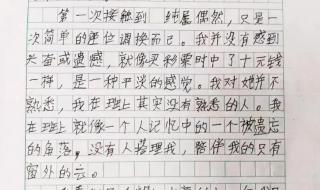 第一次接触到 纯属偶然，只是一
次简单的座位调换而已。我并没有感到
失落或遗憾，就像买彩票时中了十元钱
一样，是一种平淡的感觉。我对她并不
熟悉，我在班上其实没有熟悉的人。我
在班上就像一个人记忆中的一个被遗忘
的角落，没有人搭理我，陪伴我的只有
窗外的云。